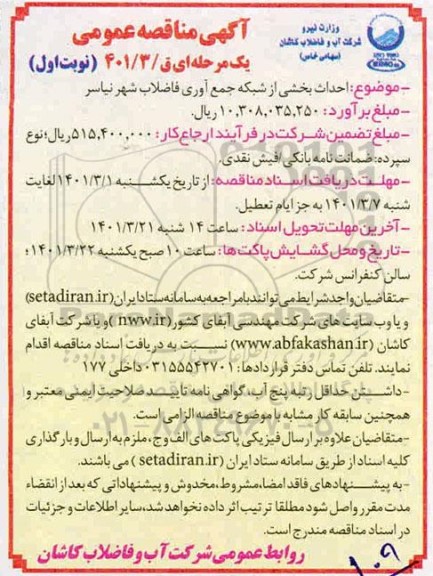 وزارت نیرو
شرکت آب و فاضلاب کاشان
(سهامی خاص)
آگهی مناقصه عمومی
یک مرحله‌ای ق/۴۰۱/۳ (نوبت اول)
-موضوع: احداث بخشی از شبکه جمع آوری فاضلاب شهر نیاسر
-مبلغ برآورد: ۱۰,۳۰۸,۰۳۵,۲۵۰ ریال.
-مبلغ تضمین شرکت در فرآیند ارجاع کار: ۵۱۵,۴۰۰,۰۰۰ریال؛ نوع
سپرده: ضمانت نامه بانکی/فیش نقدی.
-مهلت دریافت اسناد مناقصه: از تاریخ یکشنبه ۱۴۰۱/۳/۱ لغایت
شنبه ۱۴۰۱/۳/۷ به جز ایام تعطیل.
-آخرین مهلت تحویل اسناد: ساعت ۱۴ شنبه ۱۴۰۱/۳/۲۱
-تاریخ و محل گشایش پاکت‌ها: ساعت ۱۰ صبح یکشنبه ۱۴۰۱/۳/۲۲؛
سالن کنفرانس شرکت.
-متقاضیان واجد شرایط می توانند با مراجعه به سامانه ستاد ایران (setadiran.ir)
و یا وب سایت های شرکت مهندسی آبفای کشور (nww.ir) و یا شرکت آبفای
کاشان (www.abfakashan.ir) نسبت به دریافت اسناد مناقصه اقدام
نمایند. تلفن تماس دفتر قراردادها: ۰۳۱۵۵۵۴۲۷۰۱ داخلی ۱۷۷
-داشتن حداقل رتبه پنج آب، گواهی نامه تایید صلاحیت ایمنی معتبر و
همچنین سابقه کار مشابه با موضوع مناقصه الزامی است.
-متقاضیان علاوه بر ارسال فیزیکی پاکت های الف و ج، ملزم به ارسال و بارگذاری
کلیه اسناد از طریق سامانه ستاد ایران (setadiran.ir) می باشند.
-به پیشنهادهای فاقد امضا، مشروط، مخدوش و پیشنهاداتی که بعد از انقضاء
مدت مقرر واصل شود مطلقا ترتیب اثر داده نخواهد شد، سایر اطلاعات و جزئیات
در اسناد مناقصه مندرج است.
روابط عمومی شرکت آب و فاضلاب کاشان